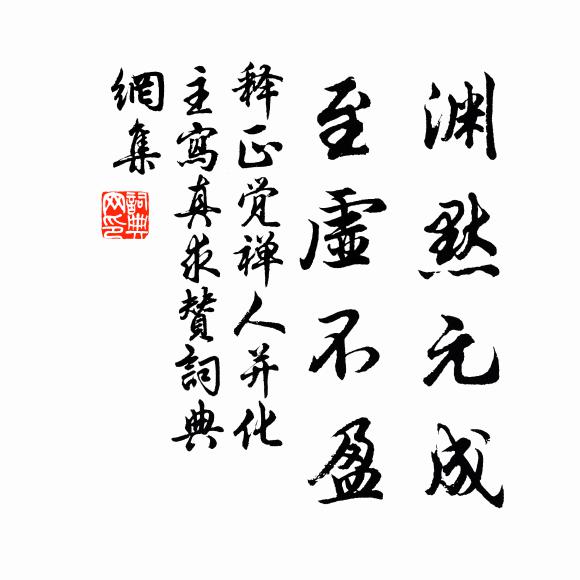 渊默元成
至虚不盈
释正觉禅人并化
主寫真求赞詞典
網集
詞典
网印